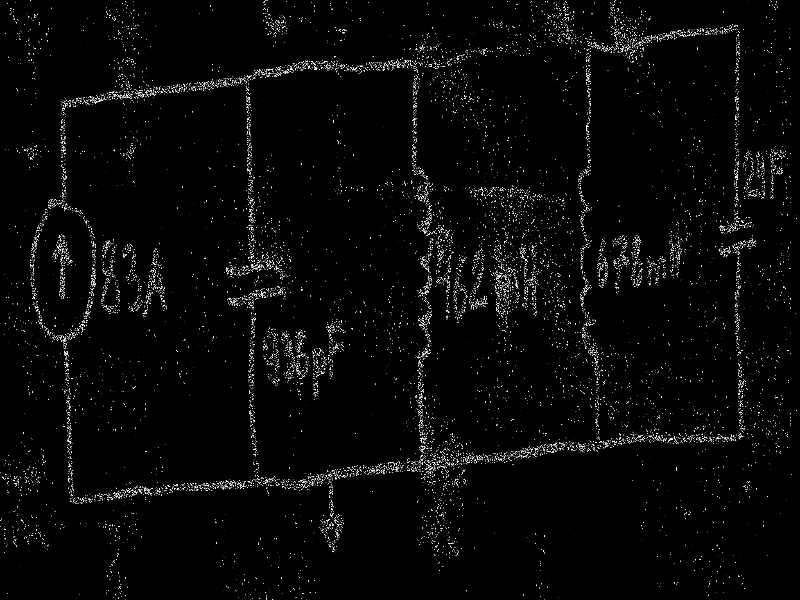 83A
936pF
962mH
678mH
29F